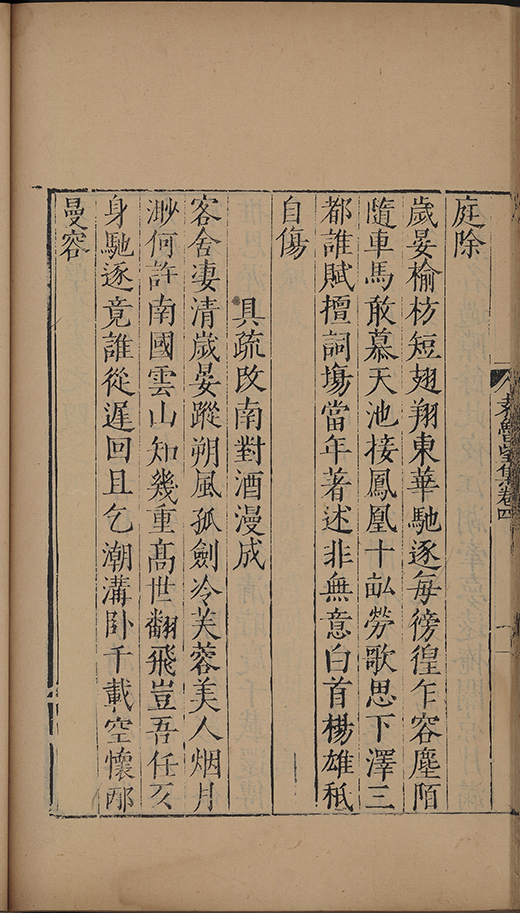 集卷四
庭除
歲晏榆枋短翅翔東華馳逐每徬徨乍容塵陌
隨車馬敢慕天池接鳳凰十畝勞歌思下澤三
都誰賦擅詞塲當年著述非無意白首楊雄秪
自傷
具疏改南對酒漫成
客舍凄清歲晏蹤朔風孤劍冷芙蓉美人烟月
渺何許南國雲山知幾重髙世翻飛豈吾任亥
身馳逐竟誰從遲回且乞潮溝卧千載空懷邴
曼容